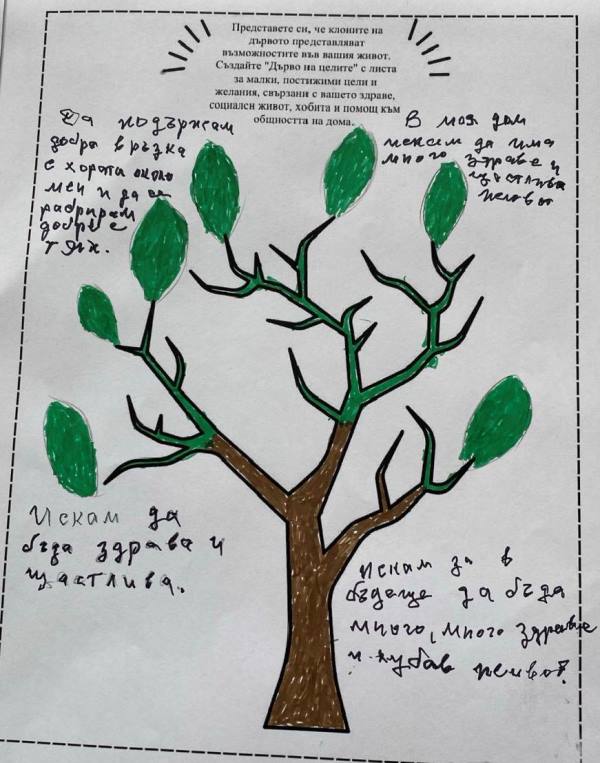 Представете си, че клоните на
дървото представляват
възможностите във вашия живот.
Създайте "Дърво на целите" с листа
за малки, постижими цели и
желания, свързани с вашето здраве,
социален живот, хобита и помощ към
общността на дома.
Да подържам
добра връзка
с хората около
мен и да се
разбирам
добре с
тях.
В моя дом
искам да има
много здраве и
щастлива
живот
Искам да
бъда здрава и
щастлива.
Искам за в
бъдеще да бъда
много, много здраве
и хубав живот.